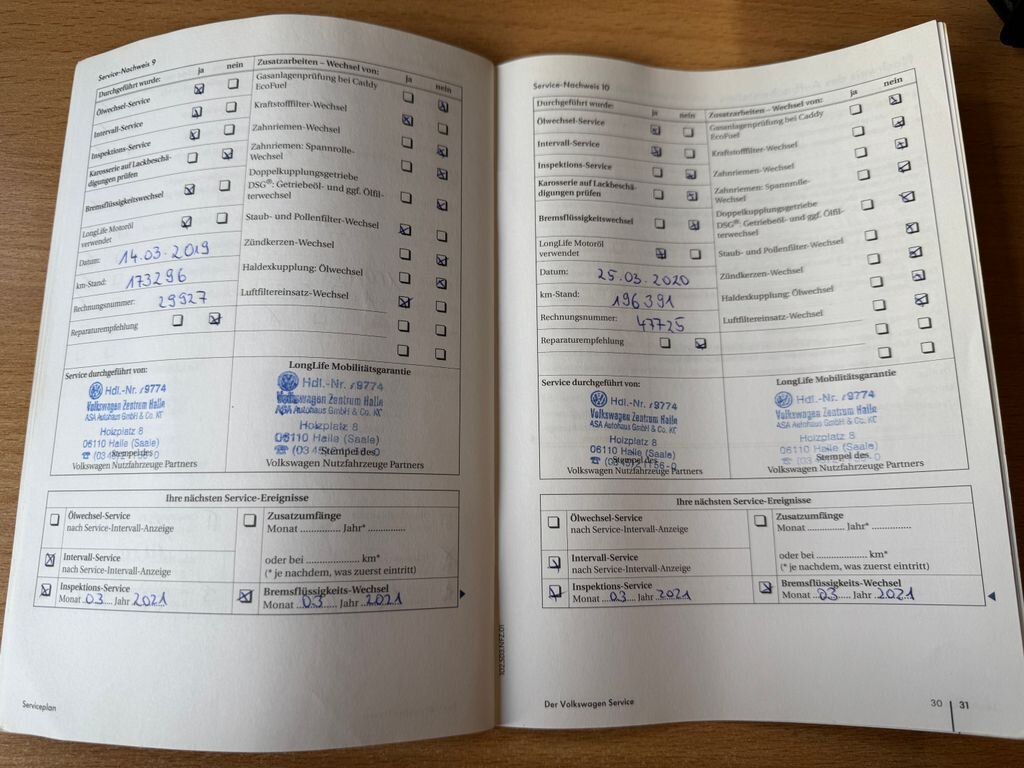 Service-Nachweis 9
Durchgeführt wurde: ja nein
Ölwechsel-Service
Intervall-Service
Inspektions-Service
Karosserie auf Lackbeschä-
digungen prüfen
Bremsflüssigkeitswechsel
LongLife Motoröl
verwendet
Datum: 14.03.2019
km-Stand: 173296
Rechnungsnummer: 29927
Reparaturempfehlung
Zusatzarbeiten – Wechsel von: ja nein
Gasanlagenprüfung bei Caddy
EcoFuel
Kraftstofffilter-Wechsel
Zahnriemen-Wechsel
Zahnriemen: Spannrolle-
Wechsel
Doppelkupplungsgetriebe
DSG®: Getriebeöl- und ggf. Ölfil-
terwechsel
Staub- und Pollenfilter-Wechsel
Zündkerzen-Wechsel
Haldexkupplung: Ölwechsel
Luftfiltereinsatz-Wechsel
Service durchgeführt von:
Hdl.-Nr. 19774
Volkswagen Zentrum Halle
ASA Autohaus GmbH & Co. KG
Holzplatz 8
06110 Halle (Saale)
Stempel des
Volkswagen Nutzfahrzeuge Partners
LongLife Mobilitätsgarantie
Hdl.-Nr. 19774
Volkswagen Zentrum Halle
ASA Autohaus GmbH & Co. KG
Holzplatz 8
06110 Halle (Saale)
Stempel des
Volkswagen Nutzfahrzeuge Partners
Ihre nächsten Service-Ereignisse
Ölwechsel-Service
nach Service-Intervall-Anzeige
Intervall-Service
nach Service-Intervall-Anzeige
Inspektions-Service
Monat ...03.... Jahr 2021
Zusatzumfänge
Monat ............... Jahr* ...............
oder bei .................... km*
(* je nachdem, was zuerst eintritt)
Bremsflüssigkeits-Wechsel
Monat ...03..... Jahr ..2021
Serviceplan
102.5D3.NFZ.01
Service-Nachweis 10
Durchgeführt wurde: ja nein
Ölwechsel-Service
Intervall-Service
Inspektions-Service
Karosserie auf Lackbeschä-
digungen prüfen
Bremsflüssigkeitswechsel
LongLife Motoröl
verwendet
Datum: 25.03.2020
km-Stand: 196391
Rechnungsnummer: 47725
Reparaturempfehlung
Zusatzarbeiten – Wechsel von: ja nein
Gasanlagenprüfung bei Caddy
EcoFuel
Kraftstofffilter-Wechsel
Zahnriemen-Wechsel
Zahnriemen: Spannrolle-
Wechsel
Doppelkupplungsgetriebe
DSG®: Getriebeöl- und ggf. Ölfil-
terwechsel
Staub- und Pollenfilter-Wechsel
Zündkerzen-Wechsel
Haldexkupplung: Ölwechsel
Luftfiltereinsatz-Wechsel
Service durchgeführt von:
Hdl.-Nr. 19774
Volkswagen Zentrum Halle
ASA Autohaus GmbH & Co. KG
Holzplatz 8
06110 Halle (Saale)
Stempel des
Volkswagen Nutzfahrzeuge Partners
LongLife Mobilitätsgarantie
Hdl.-Nr. 19774
Volkswagen Zentrum Halle
ASA Autohaus GmbH & Co. KG
Holzplatz 8
06110 Halle (Saale)
Stempel des
Volkswagen Nutzfahrzeuge Partners
Ihre nächsten Service-Ereignisse
Ölwechsel-Service
nach Service-Intervall-Anzeige
Intervall-Service
nach Service-Intervall-Anzeige
Inspektions-Service
Monat ...03.... Jahr .2021
Zusatzumfänge
Monat ............... Jahr* ...............
oder bei .................... km*
(* je nachdem, was zuerst eintritt)
Bremsflüssigkeits-Wechsel
Monat ...03..... Jahr ..2021
Der Volkswagen Service
30 31